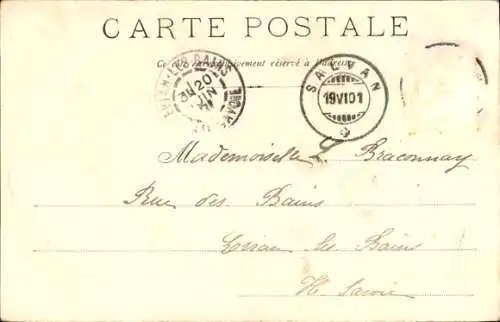 CARTE POSTALE
Ce côté est exclusivement réservé à l'adresse
LES-BAINS
3E 20
JUIN
SAVOIE
SALVAN
19 VI 01
Mademoiselle L. Braconnay
Rue des Bains
Evian les Bains
Hte Savoie